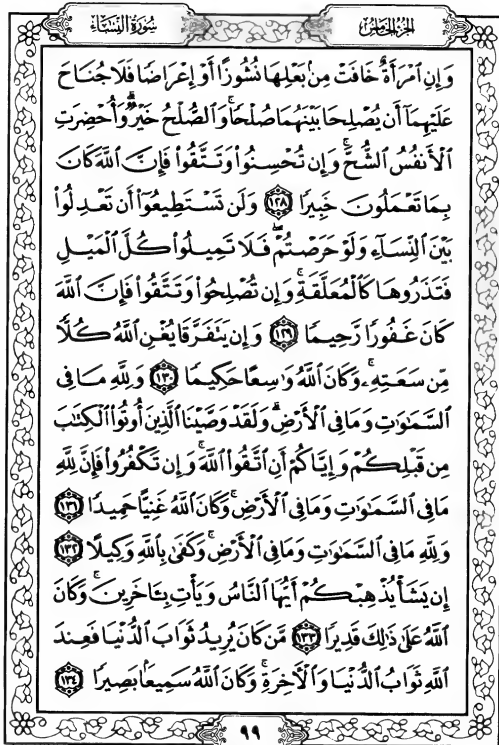 سورة النساء
الجزء الخامس
وَإِنِ ٱمْرَأَةٌ خَافَتْ مِنۢ بَعْلِهَا نُشُوزًا أَوْ إِعْرَاضًا فَلَا جُنَاحَ
عَلَيْهِمَآ أَن يُصْلِحَا بَيْنَهُمَا صُلْحًا ۚ وَٱلصُّلْحُ خَيْرٌ ۗ وَأُحْضِرَتِ
ٱلْأَنفُسُ ٱلشُّحَّ ۚ وَإِن تُحْسِنُوا۟ وَتَتَّقُوا۟ فَإِنَّ ٱللَّهَ كَانَ
بِمَا تَعْمَلُونَ خَبِيرًا ١٢٨ وَلَن تَسْتَطِيعُوٓا۟ أَن تَعْدِلُوا۟
بَيْنَ ٱلنِّسَآءِ وَلَوْ حَرَصْتُمْ ۖ فَلَا تَمِيلُوا۟ كُلَّ ٱلْمَيْلِ
فَتَذَرُوهَا كَٱلْمُعَلَّقَةِ ۚ وَإِن تُصْلِحُوا۟ وَتَتَّقُوا۟ فَإِنَّ ٱللَّهَ
كَانَ غَفُورًا رَّحِيمًا ١٢٩ وَإِن يَتَفَرَّقَا يُغْنِ ٱللَّهُ كُلًّا
مِّن سَعَتِهِۦ ۚ وَكَانَ ٱللَّهُ وَٰسِعًا حَكِيمًا ١٣٠ وَلِلَّهِ مَا فِى
ٱلسَّمَٰوَٰتِ وَمَا فِى ٱلْأَرْضِ ۗ وَلَقَدْ وَصَّيْنَا ٱلَّذِينَ أُوتُوا۟ ٱلْكِتَٰبَ
مِن قَبْلِكُمْ وَإِيَّاكُمْ أَنِ ٱتَّقُوا۟ ٱللَّهَ ۚ وَإِن تَكْفُرُوا۟ فَإِنَّ لِلَّهِ
مَا فِى ٱلسَّمَٰوَٰتِ وَمَا فِى ٱلْأَرْضِ ۚ وَكَانَ ٱللَّهُ غَنِيًّا حَمِيدًا ١٣١
وَلِلَّهِ مَا فِى ٱلسَّمَٰوَٰتِ وَمَا فِى ٱلْأَرْضِ ۚ وَكَفَىٰ بِٱللَّهِ وَكِيلًا ١٣٢
إِن يَشَأْ يُذْهِبْكُمْ أَيُّهَا ٱلنَّاسُ وَيَأْتِ بِـَٔاخَرِينَ ۚ وَكَانَ
ٱللَّهُ عَلَىٰ ذَٰلِكَ قَدِيرًا ١٣٣ مَّن كَانَ يُرِيدُ ثَوَابَ ٱلدُّنْيَا فَعِندَ
ٱللَّهِ ثَوَابُ ٱلدُّنْيَا وَٱلْـَٔاخِرَةِ ۚ وَكَانَ ٱللَّهُ سَمِيعًۢا بَصِيرًا ١٣٤
٩٩